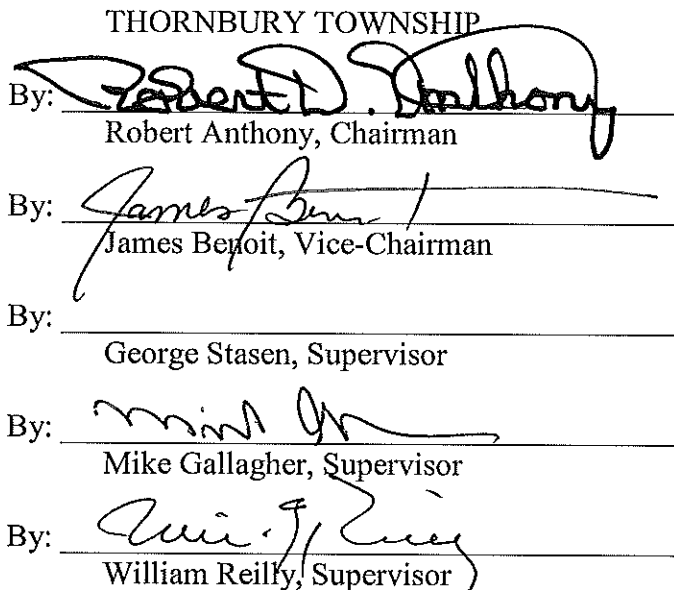 THORNBURY TOWNSHIP
By: Robert D. Anthony
Robert Anthony, Chairman
By: James Benoit
James Benoit, Vice-Chairman
By:
George Stasen, Supervisor
By:
Mike Gallagher, Supervisor
By:
William Reilly, Supervisor